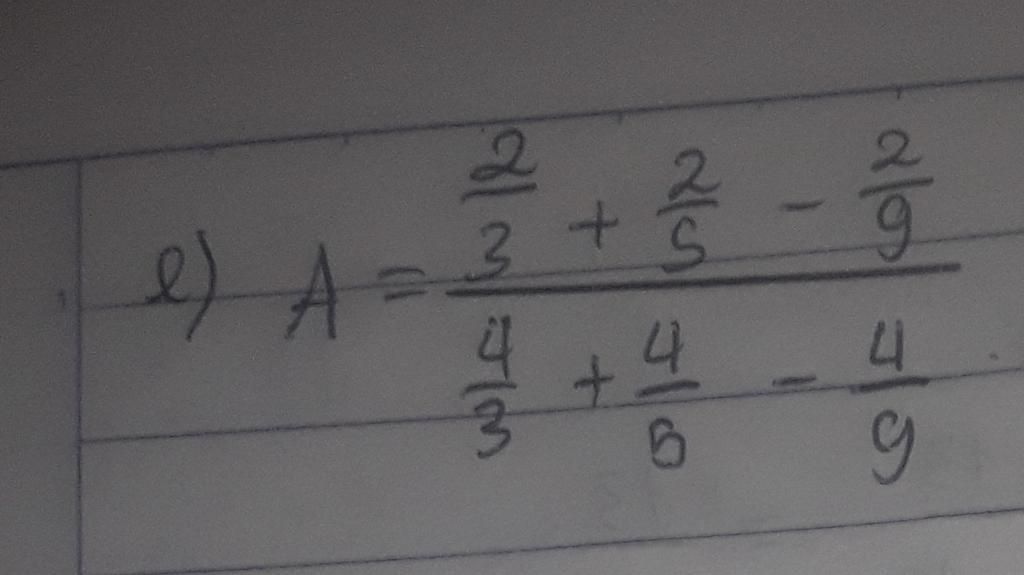 e) A = \frac{\frac{2}{3} + \frac{2}{5} - \frac{2}{9}}{\frac{4}{3} + \frac{4}{5} - \frac{4}{9}}